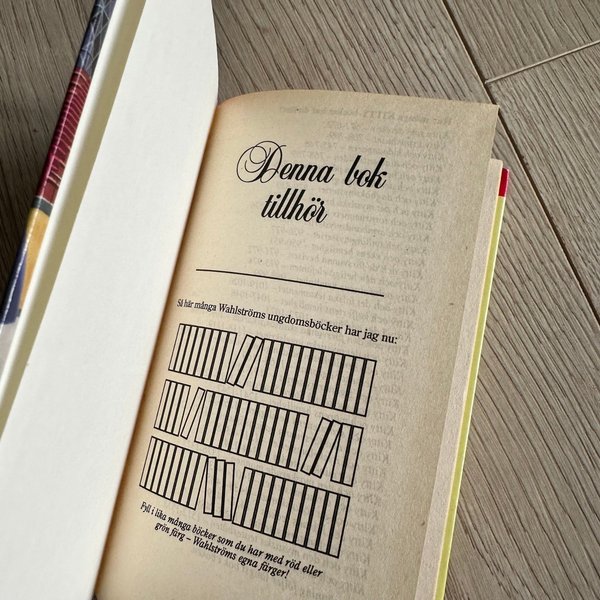 Denna bok
tillhör
Så här många Wahlströms ungdomsböcker har jag nu:
Fyll i lika många böcker som du har med röd eller
grön färg – Wahlströms egna färger!